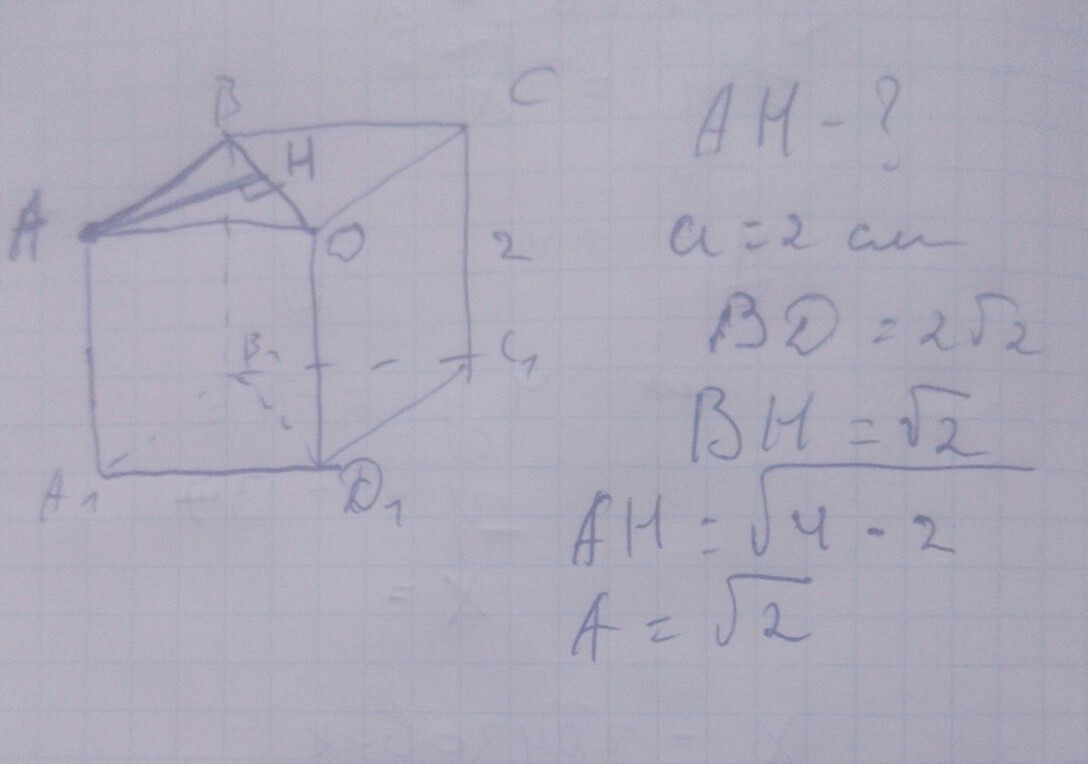 B
C
H
A
D
2
B₁
C₁
A₁
D₁
AH - ?
a = 2 см
BD = 2√2
BH = √2
AH = √4 - 2
A = √2